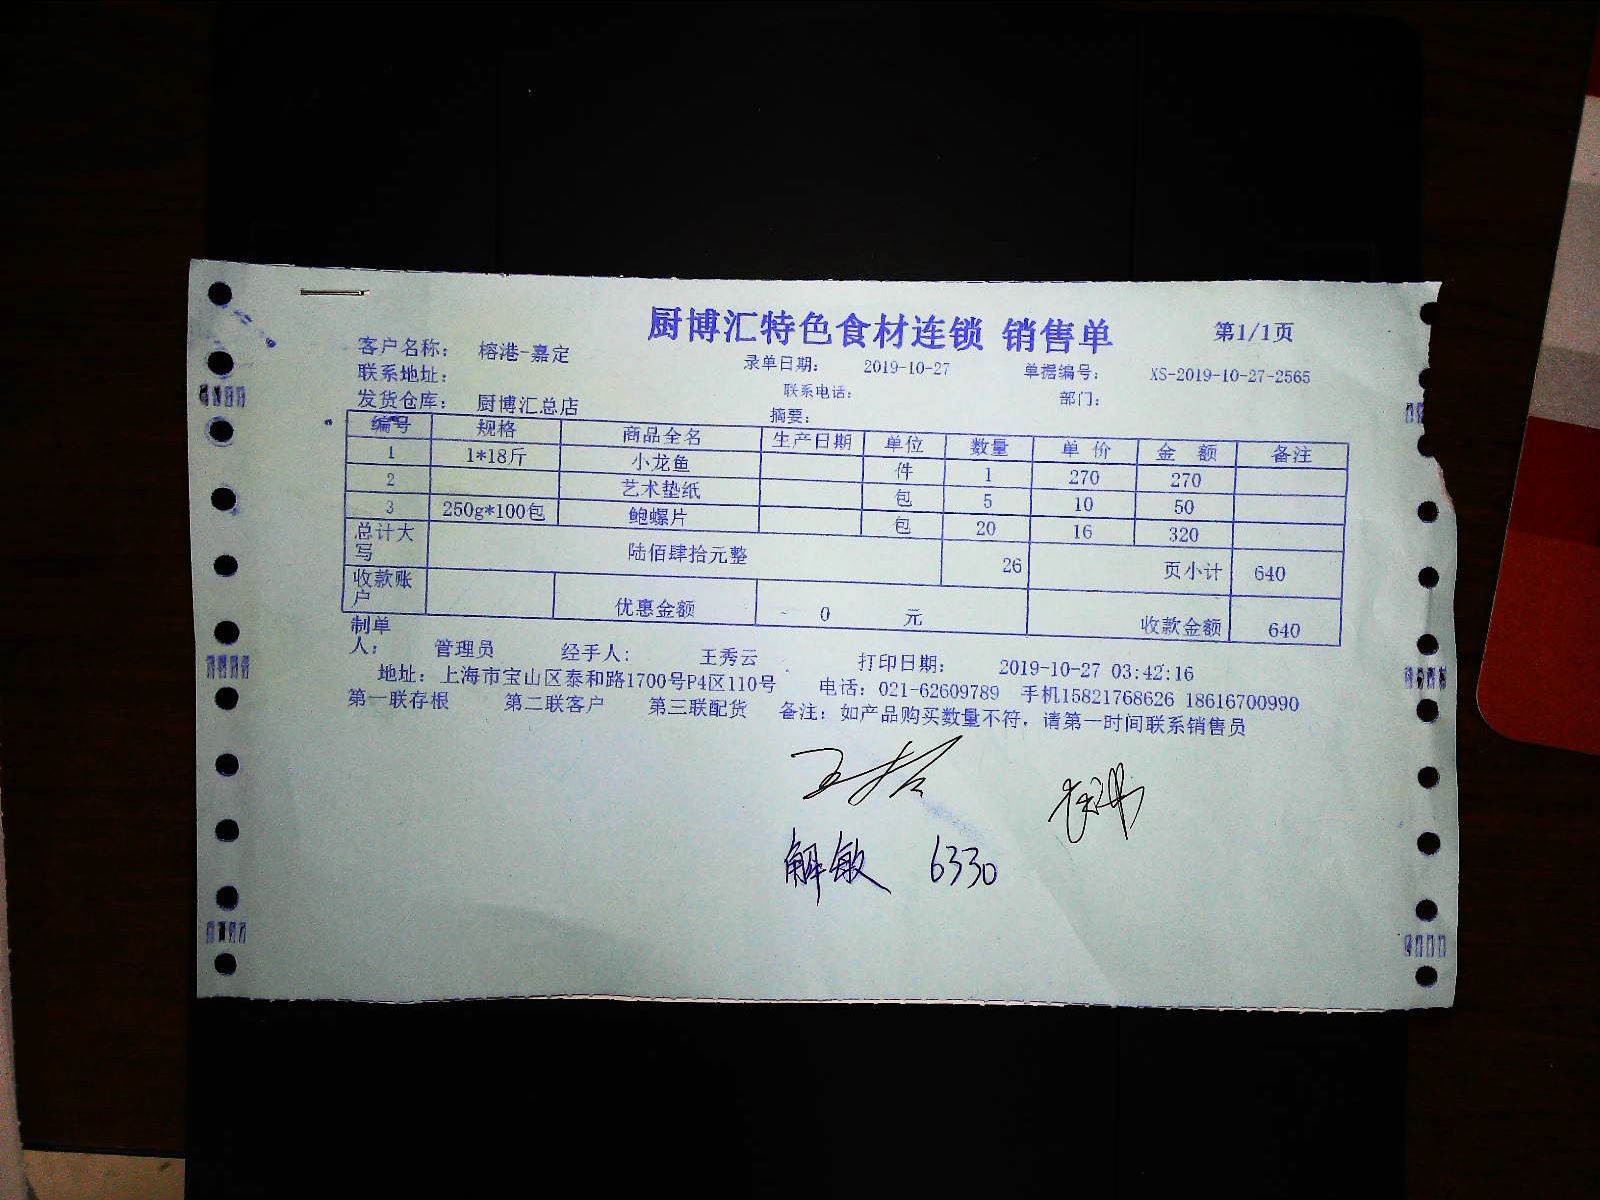 厨博汇特色食材连锁 销售单 第1/1页
客户名称： 榕港-嘉定 录单日期： 2019-10-27 单据编号： XS-2019-10-27-2565
联系地址： 联系电话： 部门：
发货仓库： 厨博汇总店 摘要：
编号 规格 商品全名 生产日期 单位 数量 单 价 金 额 备注
1 1*18斤 小龙鱼 件 1 270 270
2 艺术垫纸 包 5 10 50
3 250g*100包 鲍螺片 包 20 16 320
总计大写 陆佰肆拾元整 26 页小计 640
收款账户 优惠金额 0 元 收款金额 640
制单人： 管理员 经手人： 王秀云 打印日期： 2019-10-27 03:42:16
地址：上海市宝山区泰和路1700号P4区110号 电话：021-62609789 手机15821768626 18616700990
第一联存根 第二联客户 第三联配货 备注：如产品购买数量不符，请第一时间联系销售员
解敏 6330